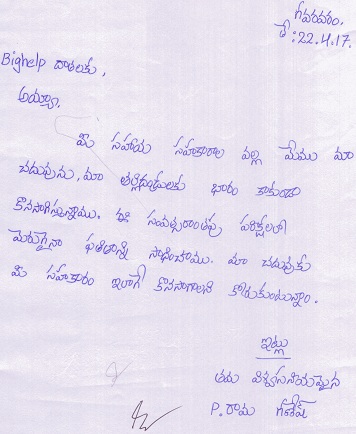 గవరవరం.
తే: 22.4.17.
Bighelp దాతలకు,
అయ్యా,
మీ సహాయ సహకారాల వల్ల మేము మా
చదువును, మా తల్లిదండ్రులకు భారం కాకుండా
కొనసాగిస్తున్నాము. ఈ సంవత్సరాంతపు పరీక్షలలో
మెరుగైన ఫలితాన్ని సాధించాము. మా చదువుకు
మీ సహకారం ఇలాగే కొనసాగాలని కోరుకుంటున్నాం.
ఇట్లు
తమ విశ్వసనీయమైన
P. రామ గణేష్